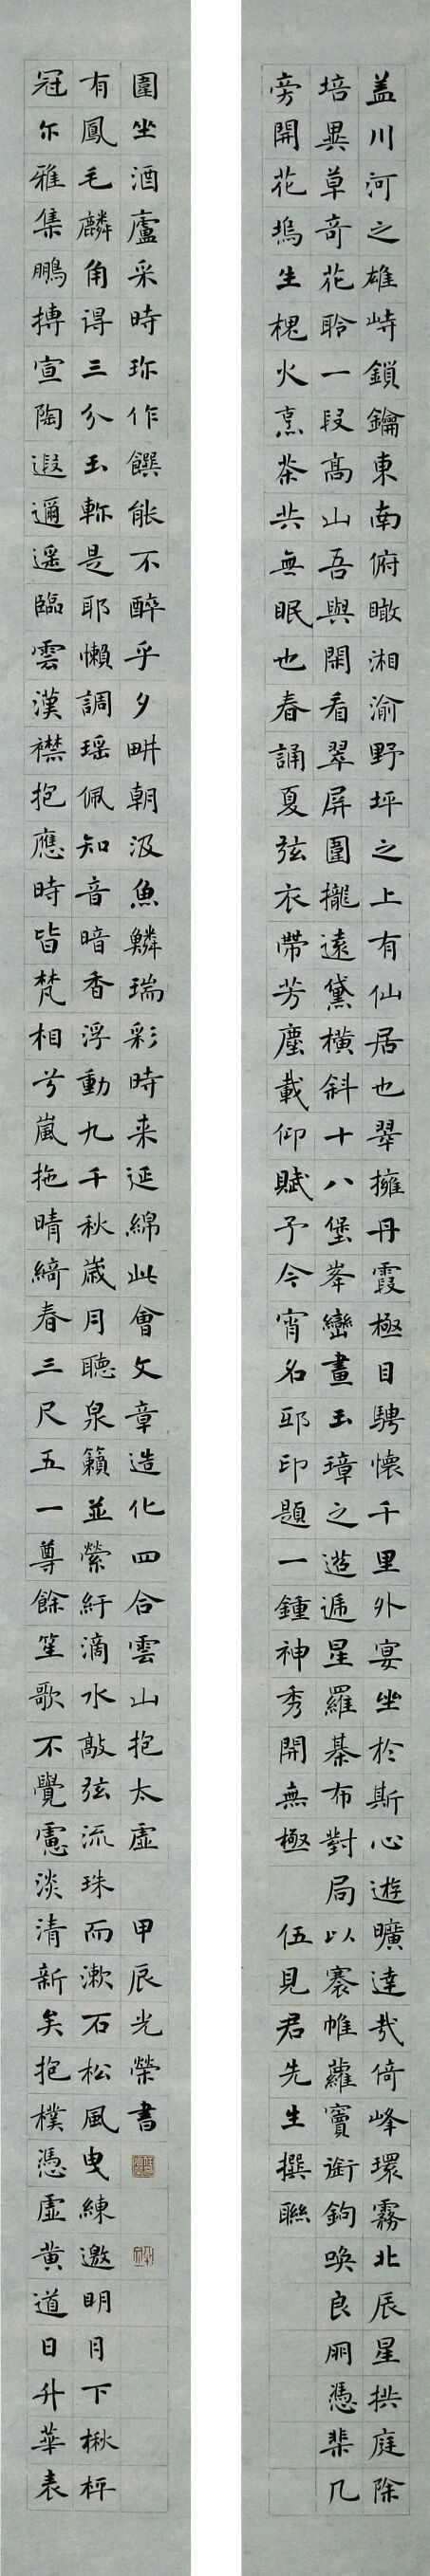 盖川河之雄峙鎖鑰東南俯瞰湘渝野坪之上有仙居也翠擁丹霞極目騁懷千里外宴坐於斯心遊曠達哉倚峰環霧北辰星拱庭除
培異草奇花聆一段高山吾與閑看翠屏圍攏遠黛橫斜十八堡峯巒畫玉璋之迢遞星羅棊布對局以褰帷蘿竇銜鉤喚良朋憑棐几
旁開花塢生槐火烹茶共無眠也春誦夏弦衣帶芳塵載仰賦予今宵名耶印題一鍾神秀開無極
伍見君先生撰聯
冠尔雅集鵬摶宣陶遐邇遥臨雲漢襟抱應時皆梵相兮嵐拖晴綺春三尺五一尊餘笙歌不覺憲淡清新矣抱樸憑虛黃道日升華表
有鳳毛麟角得三分玉斬是耶懶調瑶佩知音暗香浮動九千秋歲月聽泉籟並縈紆滴水敲弦流珠而漱石松風曳練邀明月下楸枰
圍坐酒廬采時珍作饌能不醉乎夕畊朝汲魚鱗瑞彩時来延綿此會文章造化四合雲山抱太虛
甲辰光榮書